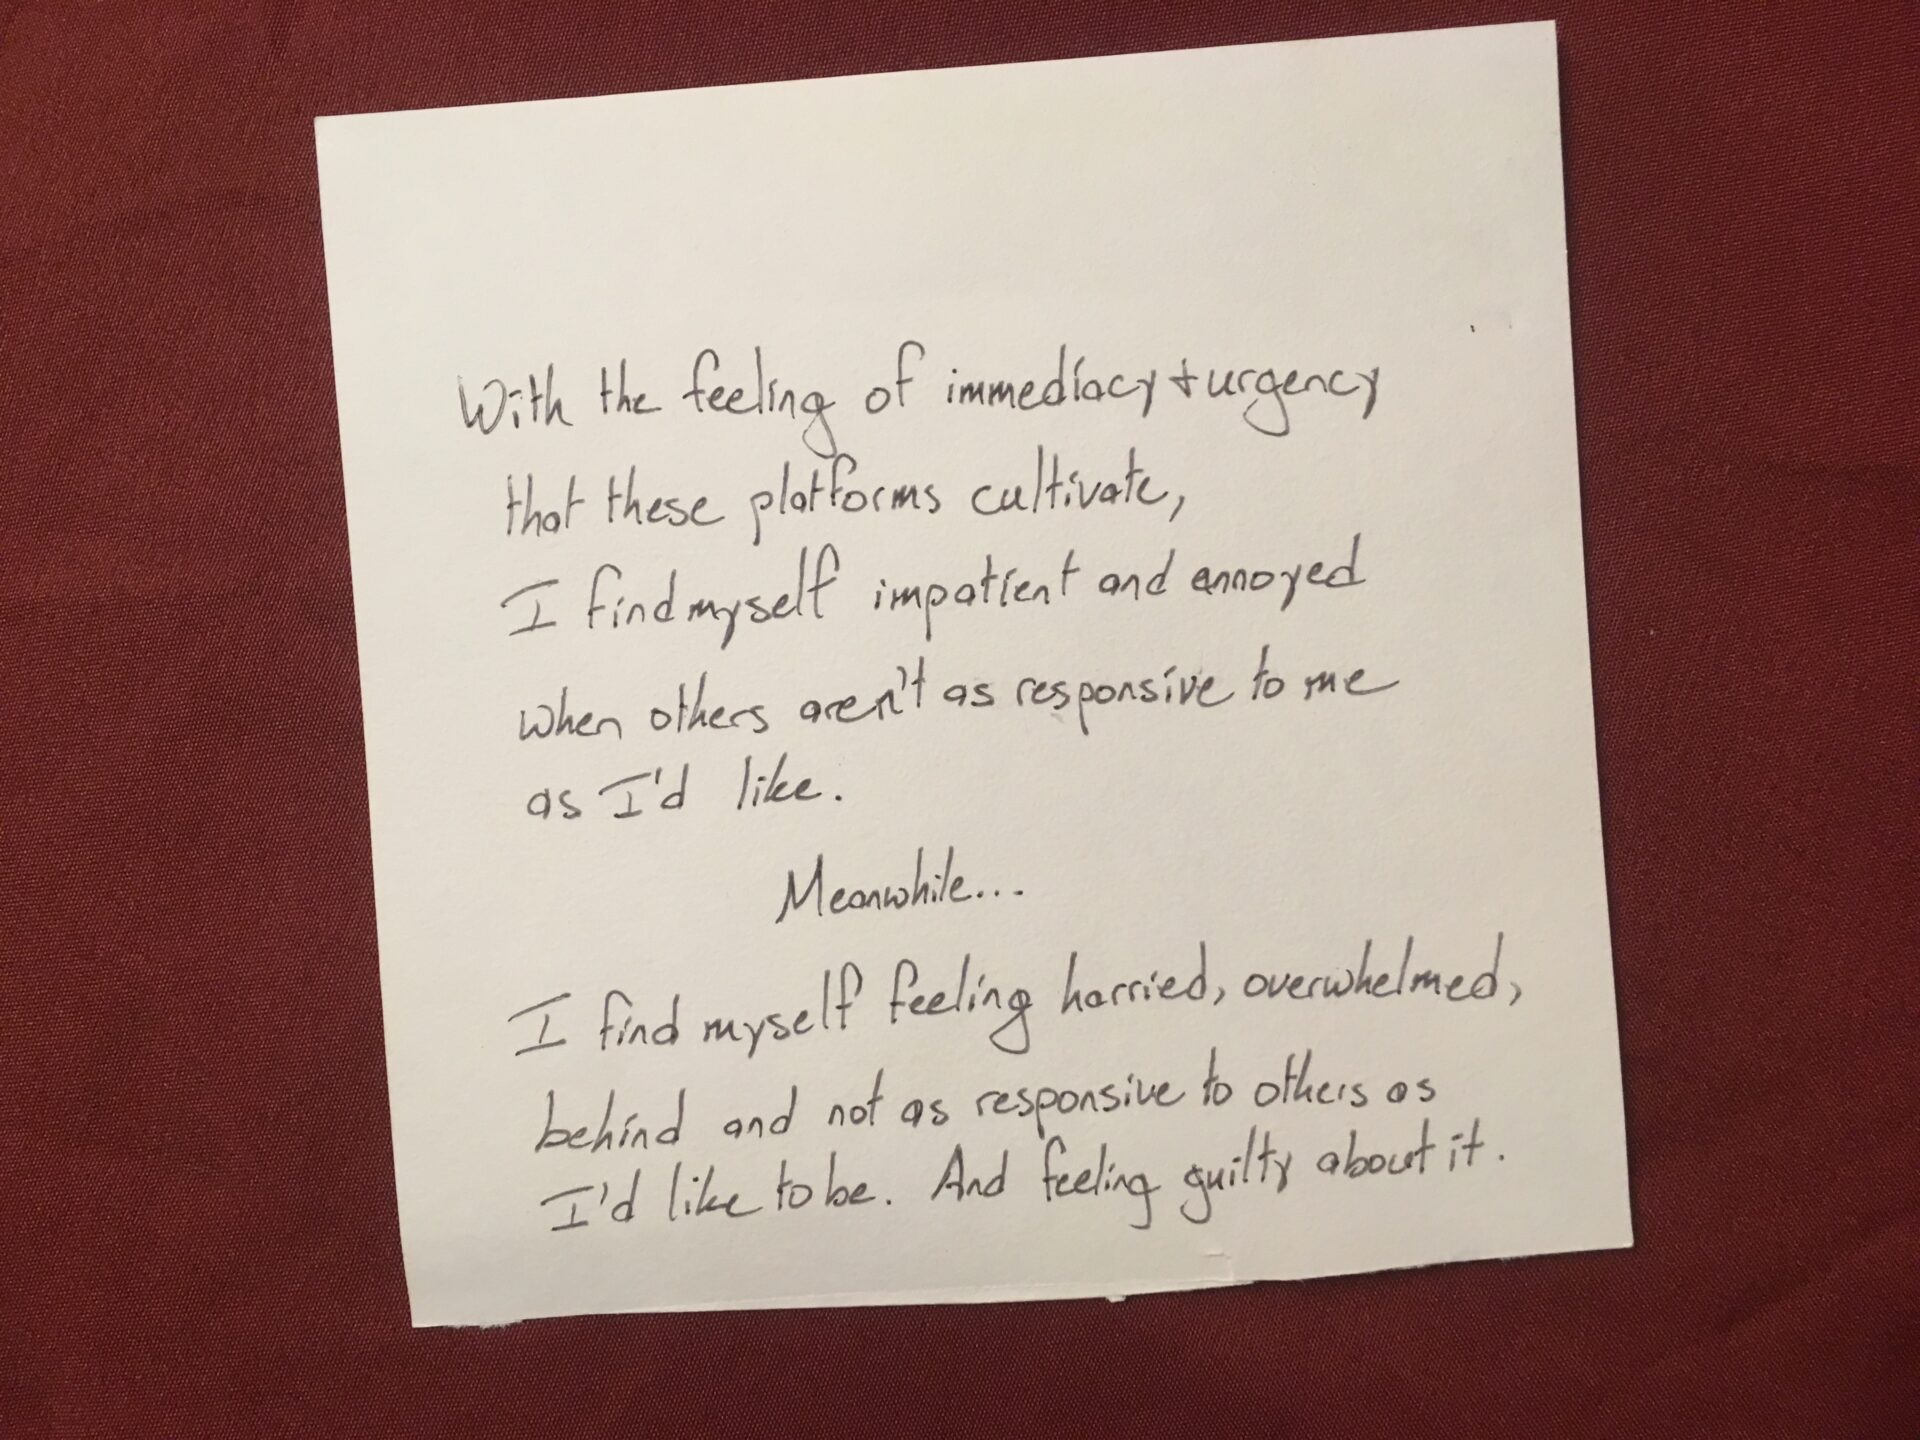 With the feeling of immediacy + urgency
that these platforms cultivate,
I find myself impatient and annoyed
when others aren't as responsive to me
as I'd like.
Meanwhile...
I find myself feeling harried, overwhelmed,
behind and not as responsive to others as
I'd like to be. And feeling guilty about it.